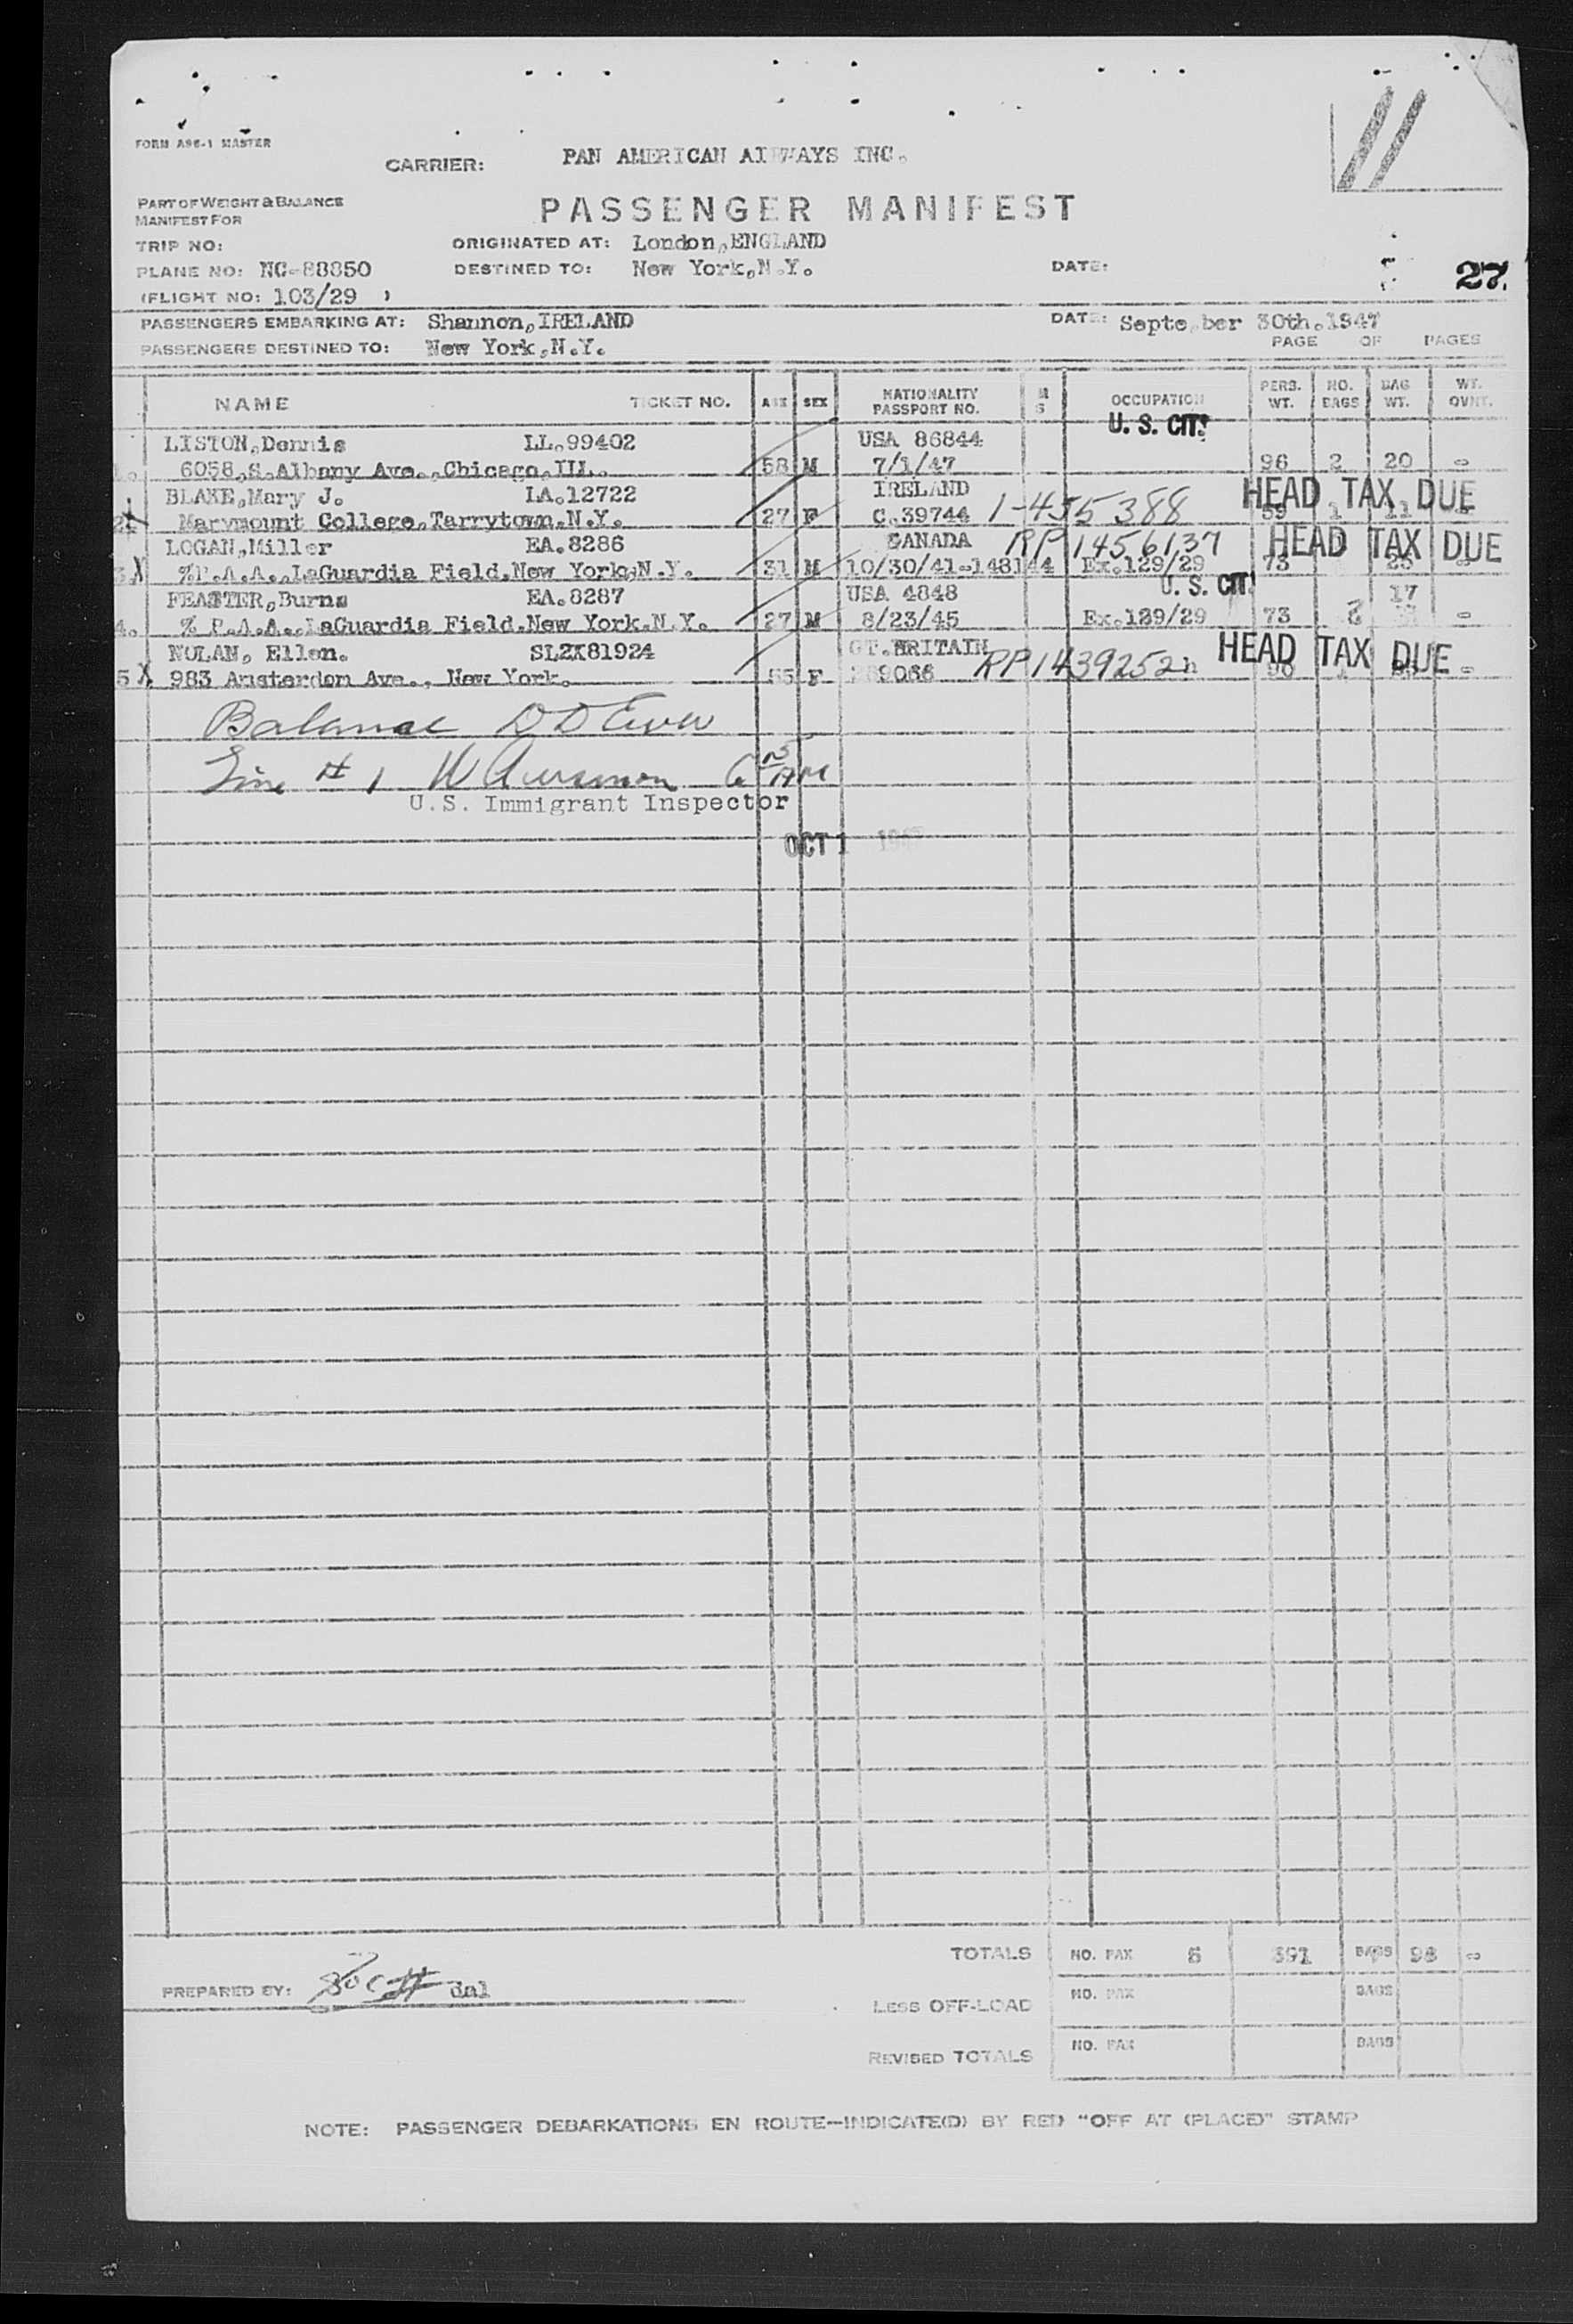 11
FORM A96-1 MASTER
CARRIER: PAN AMERICAN AIRWAYS INC.
PART OF WEIGHT & BALANCE
MANIFEST FOR
PASSENGER MANIFEST
TRIP NO: ORIGINATED AT: London, ENGLAND
PLANE NO: NC-88850 DESTINED TO: New York, N.Y. DATE: 27.
(FLIGHT NO: 103/29 )
PASSENGERS EMBARKING AT: Shannon, IRELAND DATE: Septe ber 30th. 1947
PASSENGERS DESTINED TO: New York, N.Y. PAGE OF PAGES
NAME TICKET NO. AGE SEX NATIONALITY PASSPORT NO. M S OCCUPATION PERS. WT. NO. BAGS BAG WT. WT. OVNT.
LISTON, Dennis LL. 99402 USA 86844 U. S. CIT.
1. 6058, S. Albany Ave., Chicago, Ill. 58 M 7/1/47 96 2 20 0
BLAKE, Mary J. LA. 12722 IRELAND HEAD TAX DUE
2. Marymount College, Tarrytown. N.Y. 27 F C. 39744 1-455388 59 1 11
LOGAN, Miller EA. 8286 CANADA RP 1456137 HEAD TAX DUE
3. X %P.A.A., LaGuardia Field. New York, N.Y. 31 M 10/30/41-148144 Ex. 129/29 73 25 0
FEASTER, Burns EA. 8287 USA 4848 U. S. CIT. 17
4. % P.A.A., LaGuardia Field. New York. N.Y. 27 M 8/23/45 Ex. 129/29 73 2 0
NOLAN, Ellen. SL2K81924 GT. BRITAIN HEAD TAX DUE
5 X 983 Amsterdam Ave., New York. 55 F 289066 RP 1439252 90 0
Balance
Line # 1
U.S. Immigrant Inspector
OCT 1 1947
TOTALS NO. PAX 5 391 BAGS 98 0
PREPARED BY: dal
LESS OFF-LOAD NO. PAX BAGS
REVISED TOTALS NO. PAX BAGS
NOTE: PASSENGER DEBARKATIONS EN ROUTE—INDICATE(D) BY RED "OFF AT (PLACE)" STAMP